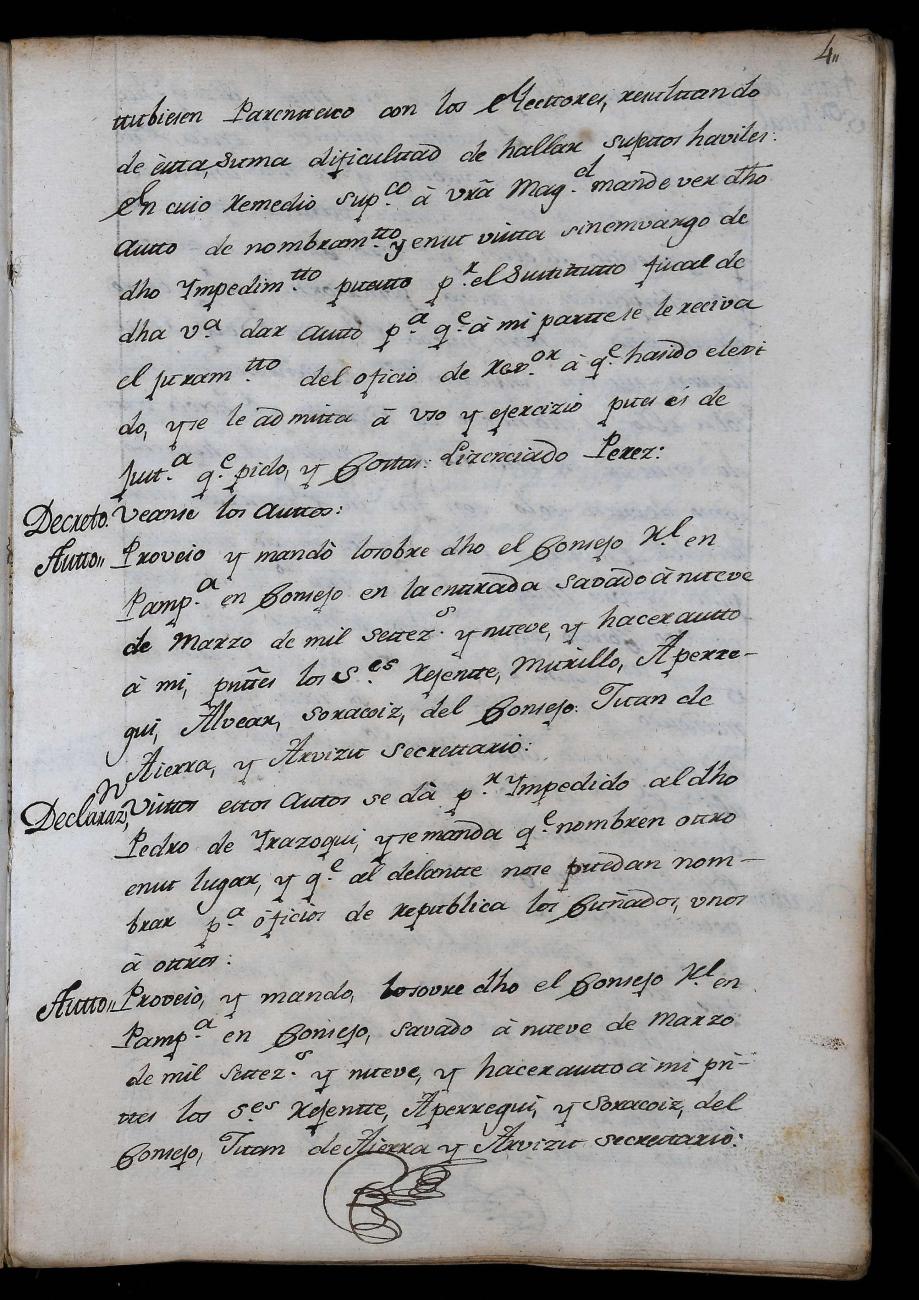 4,,
ttubiesen Parenttesco con los Electtores, resulttando
de estta, suma dificulttad de hallar sujettos haviles:
En cuio remedio sup.co à vrã Mag.d el mande ver dho
autto de nombram.tto y en su vistta sinemvargo de
dho Ympedim.tto puestto p.r el Susttitutto fiscal de
dha v.a dar autto p.a q.e à mi partte se le reciva
el juram.tto del oficio de rex.or à q.e hasido elexi
do, y se le admitta à vso y ejercizio pues es de
Just.a q.e pido, y Costtas: Lizenciado Perez:
Decreto. Veanse los auttos:
Autto,, Proveio y mandò losobre dho el Consejo Rl. en
Pamp.a en Consejo en la enttrada savado à nueve
de Marzo de mil settez.s y nueve, y hacer autto
à mi, pñtes los S.es Rejentte, Murillo, Aperre-
gui, Alvear, soracoiz, del Consejo: Juan de
Aierra, y Arvizu secrettario:
Declaraz.n Visttos esttos autos se dà p.r Ympedido al dho
Pedro de Yrazoqui, y se manda q.e nombren ottro
en su lugar, y q.e al delantte nose puedan nom-
brar p.a oficios de republica los Cuñados, vnos
à ottros:
Autto,, Proveio, y mando, losovre dho el Consejo Rl. en
Pamp.a en Consejo, savado à nueve de Marzo
de mil settez.s y nueve, y hacer autto à mi pñ-
ttes los S.es Rejentte, Aperregui, y Soracoiz, del
Consejo, Juan de Aierra y Arvizu secrettario: